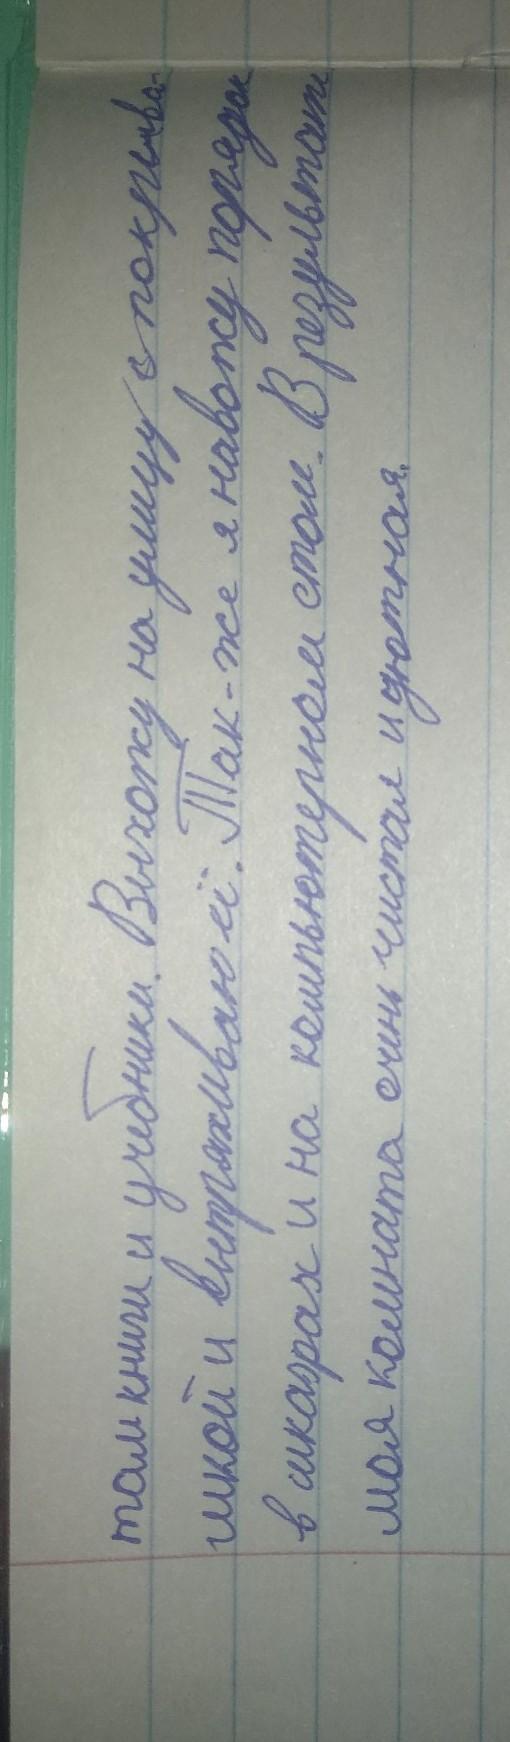 там книги и учебники. Выхожу на улицу с покрыва-
лкой и вытряхиваю её. Так-же я навожу порядок
в шкафах и на компьютерном столе. В результате
моя комната очень чистая и уютная.